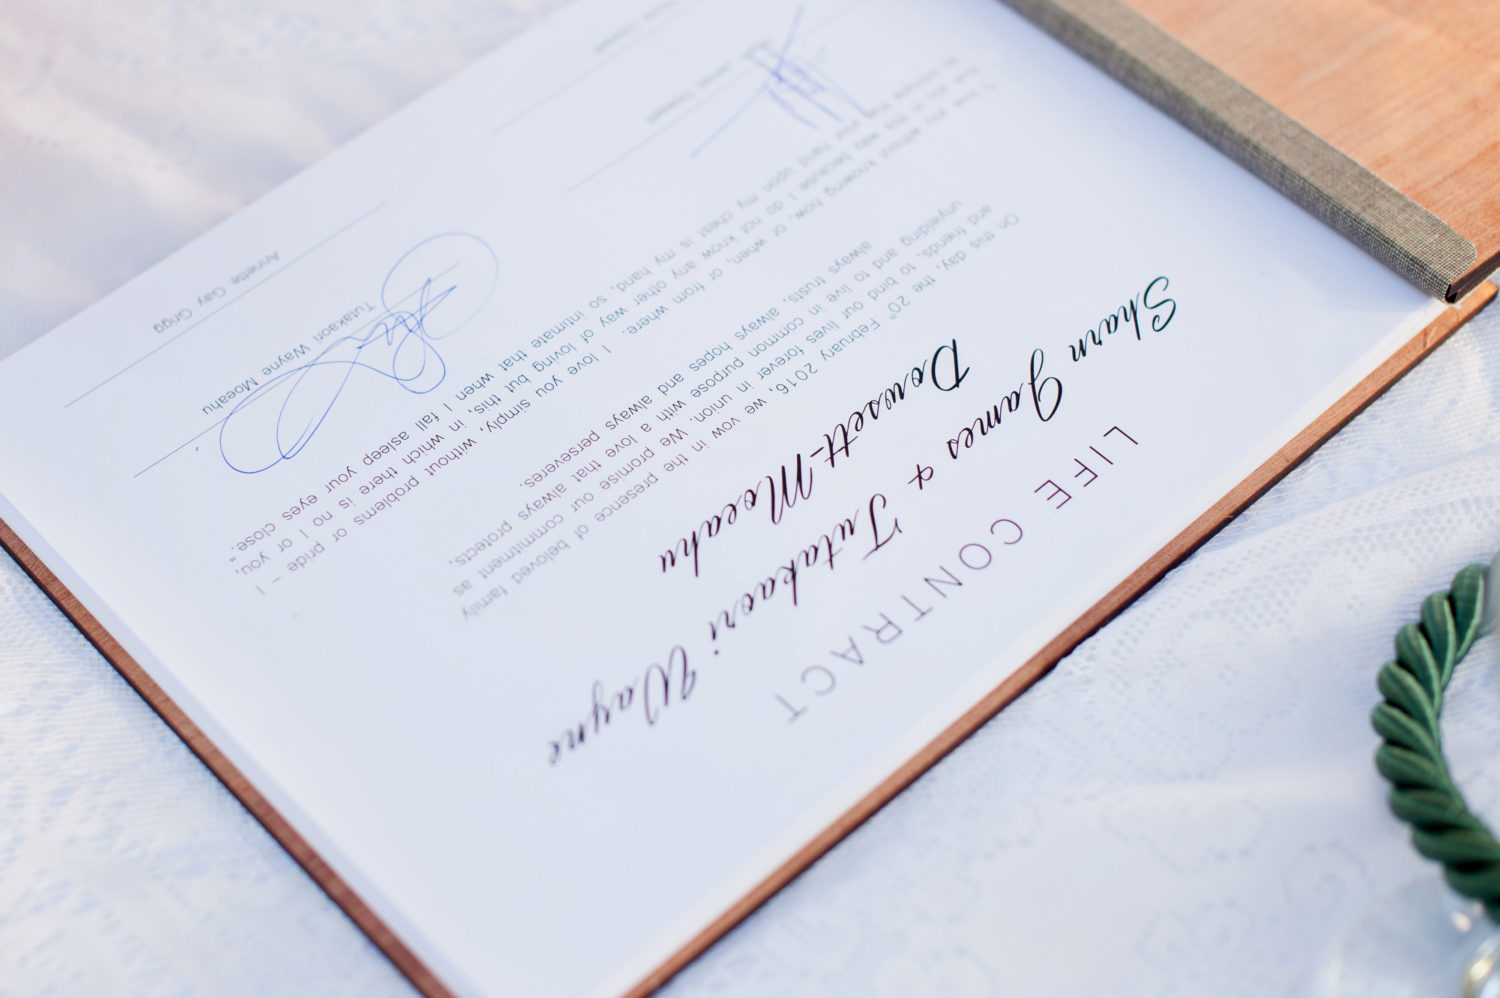 LIFE CONTRACT
Sharn James & Tutakaori Wayne
Dowsett-Moeahu
On this day, the 20th February 2016, we vow in the presence of beloved family
and friends, to bind our lives forever in union. We promise our commitment as
unyielding and to live in common purpose with a love that always protects,
always trusts, always hopes and always perseveres.
"I love you without knowing how, or when, or from where. I love you simply, without problems or pride – I
love you in this way because I do not know any other way of loving but this, in which there is no I or you,
so intimate that your hand upon my chest is my hand, so intimate that when I fall asleep your eyes close."
Tutakaori Wayne Moeahu
Annette Gay Grigg